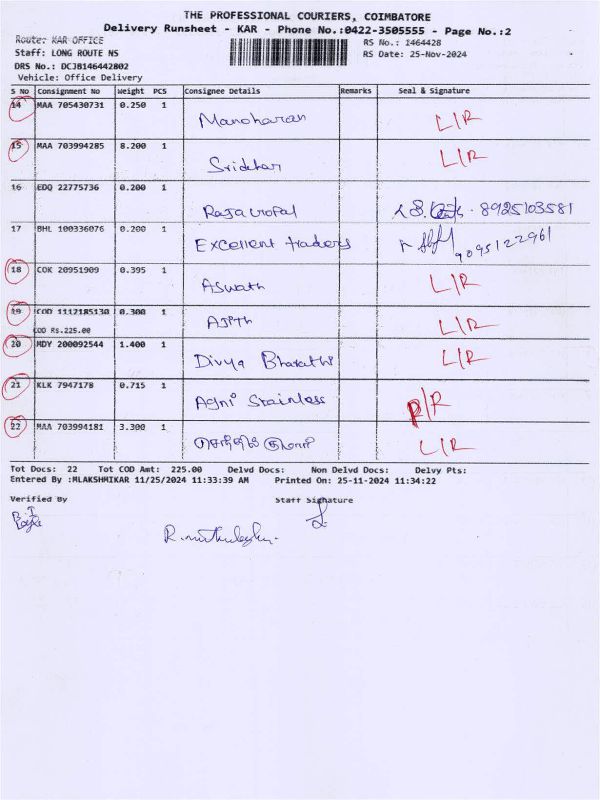 THE PROFESSIONAL COURIERS, COIMBATORE
Delivery Runsheet - KAR - Phone No.:0422-3505555 - Page No.:2
Route: KAR OFFICE
RS No.: 1464428
Staff: LONG ROUTE NS
RS Date: 25-Nov-2024
DRS No.: DCJB146442802
Vehicle: Office Delivery
S No Consignment No Weight PCS Consignee Details Remarks Seal & Signature
14 MAA 705430731 0.250 1 Manoharan L/R
15 MAA 703994285 8.200 1 Sridhar L/R
16 EDQ 22775736 0.200 1 Rajagopal 8925103581
17 BHL 100336076 0.200 1 Excellent traders 9095122961
18 COK 20951909 0.395 1 Aswath L/R
19 COD 1112185130 0.300 1 Ajith L/R
COD Rs.225.00
20 MDY 200092544 1.400 1 Divya Bharathi L/R
21 KLK 7947178 0.715 1 Agni Stainless R/R
22 MAA 703994181 3.300 1 L/R
Tot Docs: 22 Tot COD Amt: 225.00 Delvd Docs: Non Delvd Docs: Delvy Pts:
Entered By :MLAKSHMIKAR 11/25/2024 11:33:39 AM Printed On: 25-11-2024 11:34:22
Verified By Staff Signature